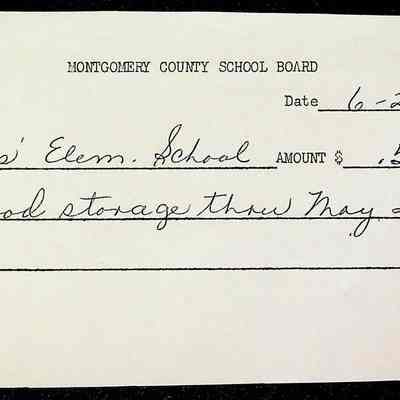 MONTGOMERY COUNTY SCHOOL BOARD
Date 6-2
s' Elem. School AMOUNT $ .5
od storage thru May